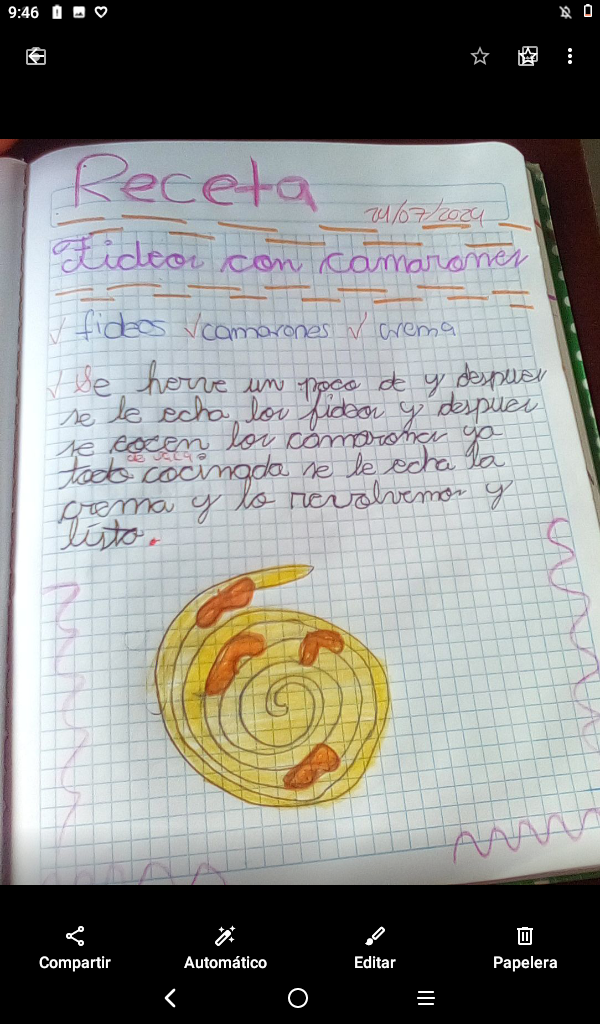 9:46
Receta
24/07/2024
Fideos con camarones
✓ fideos ✓ camarones ✓ crema
✓ Se herve un poco de y despues
se le echa los fideos y despues
se cocen los camarones ya
todo cocinada se le echa la
crema y lo revolvemos y
listo.
Compartir Automático Editar Papelera